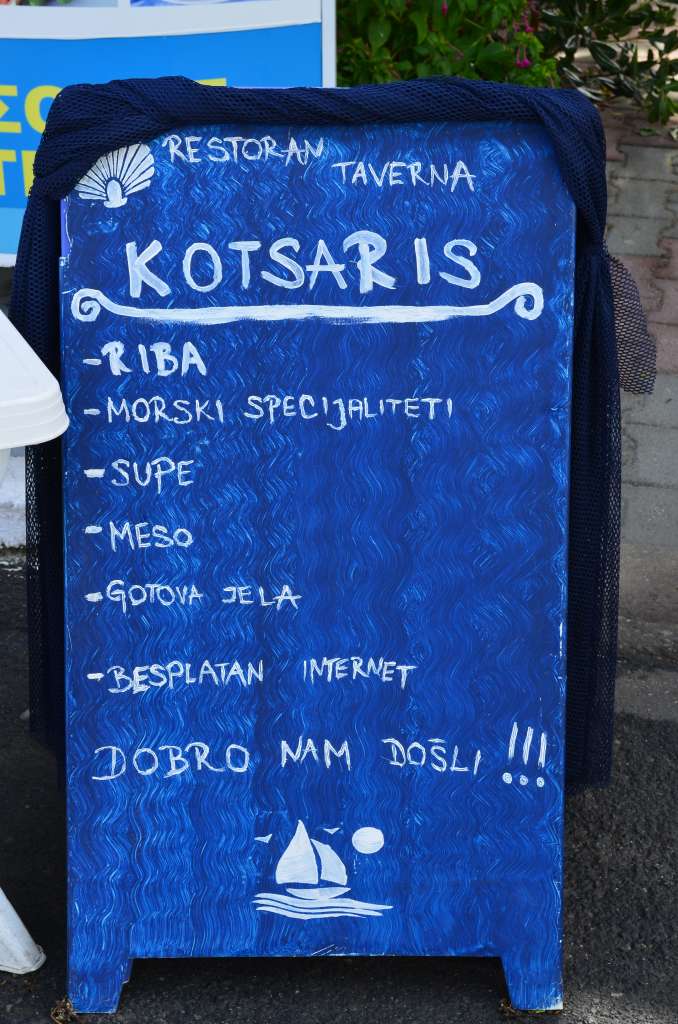 RESTORAN TAVERNA
KOTSARIS
-RIBA
-MORSKI SPECIJALITETI
-SUPE
-MESO
-GOTOVA JELA
-BESPLATAN INTERNET
DOBRO NAM DOŠLI !!!